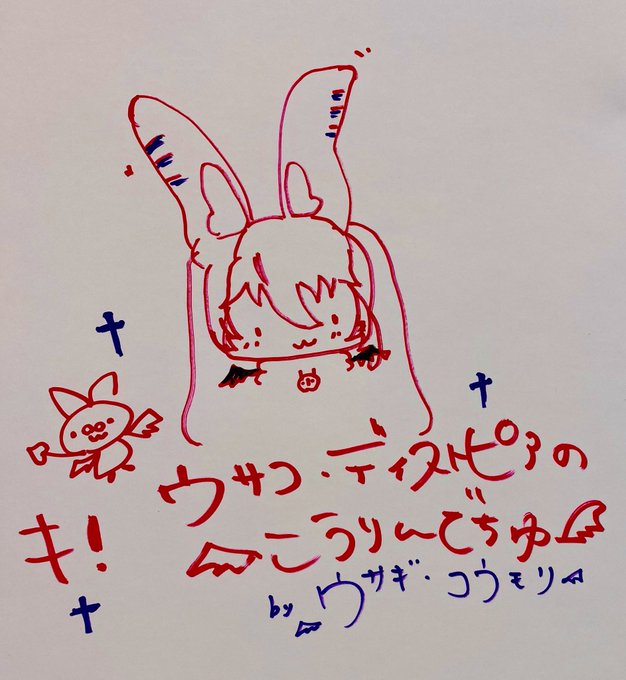 ウサコ・ディストピアの
こうりんでちゅ
キ!
by ウサギ・コウモリ